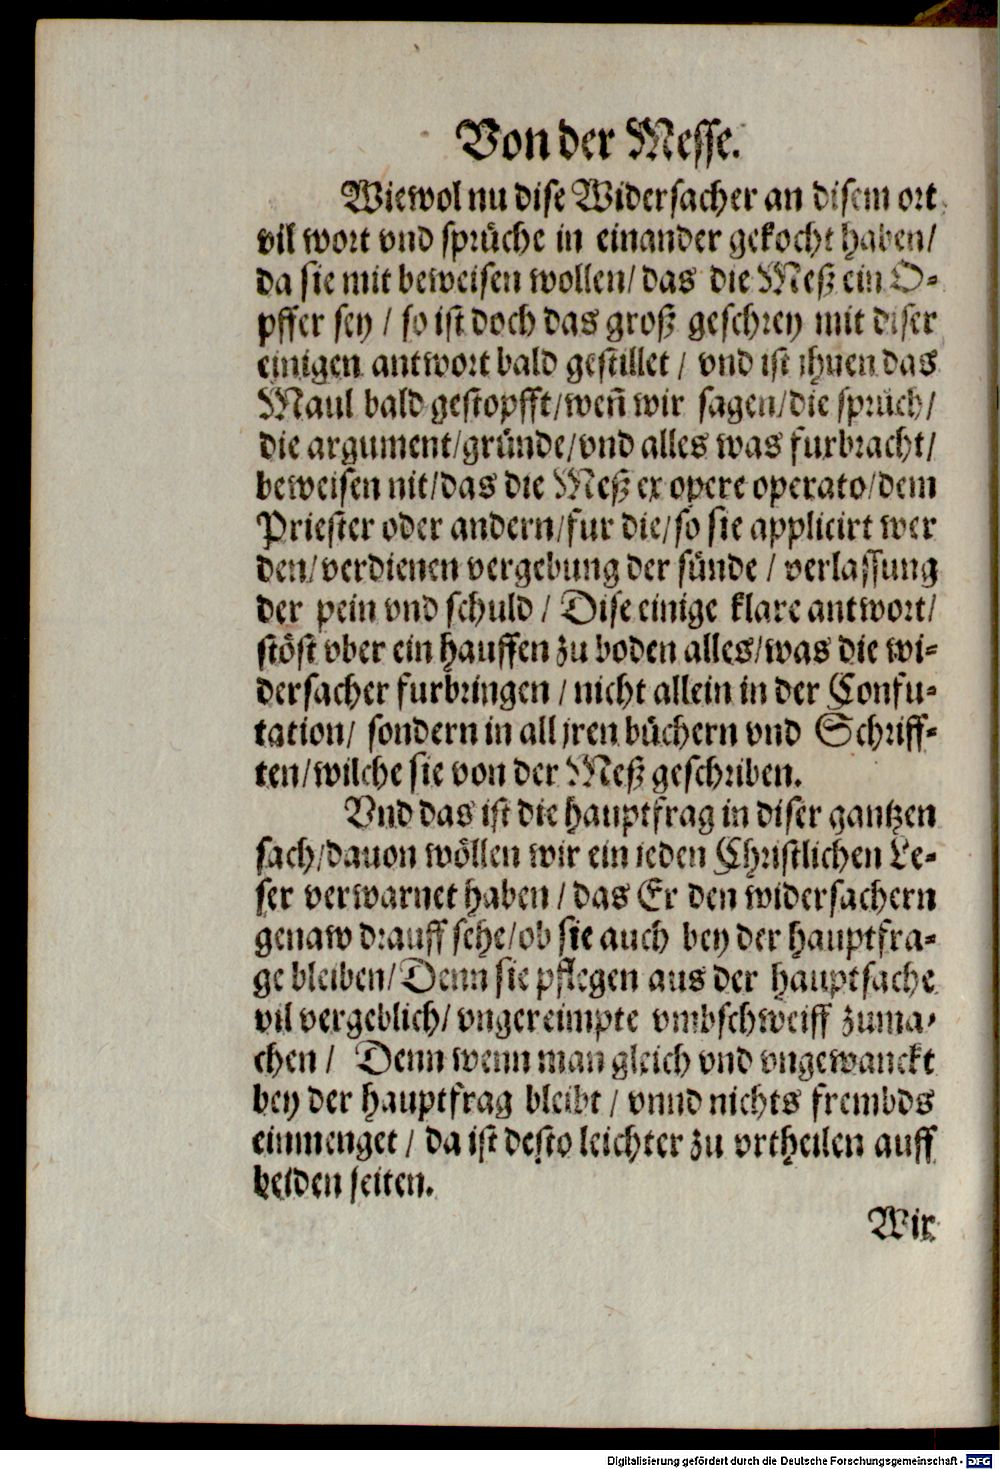 Von der Messe.
Wiewol nu dise Widersacher an disem ort
vil wort vnd sprüche in einander gekocht haben/
da sie mit beweisen wollen/ das die Meß ein O-
pffer sey / so ist doch das groß geschrey mit diser
einigen antwort bald gestillet / vnd ist ihnen das
Maul bald gestopfft/weñ wir sagen/die sprüch/
die argument/gründe/vnd alles was furbracht/
beweisen nit/das die Meß ex opere operato/dem
Priester oder andern/fur die/so sie applicirt wer
den/verdienen vergebung der sünde / verlassung
der pein vnd schuld / Dise einige klare antwort/
stöst vber ein hauffen zu boden alles/was die wi-
dersacher furbringen / nicht allein in der Confu-
tation/ sondern in all jren büchern vnd Schriff-
ten/wilche sie von der Meß geschriben.
Vnd das ist die hauptfrag in diser gantzen
sach/dauon wöllen wir ein ieden Christlichen Le-
ser verwarnet haben / das Er den widersachern
genaw drauff sehe/ob sie auch bey der hauptfra-
ge bleiben/Denn sie pflegen aus der hauptsache
vil vergeblich/ vngereimpte vmbschweiff zuma-
chen / Denn wenn man gleich vnd vngewanckt
bey der hauptfrag bleibt / vnnd nichts frembds
einmenget / da ist desto leichter zu vrtheilen auff
beiden seiten.
Wir
Digitalisierung gefördert durch die Deutsche Forschungsgemeinschaft - DFG